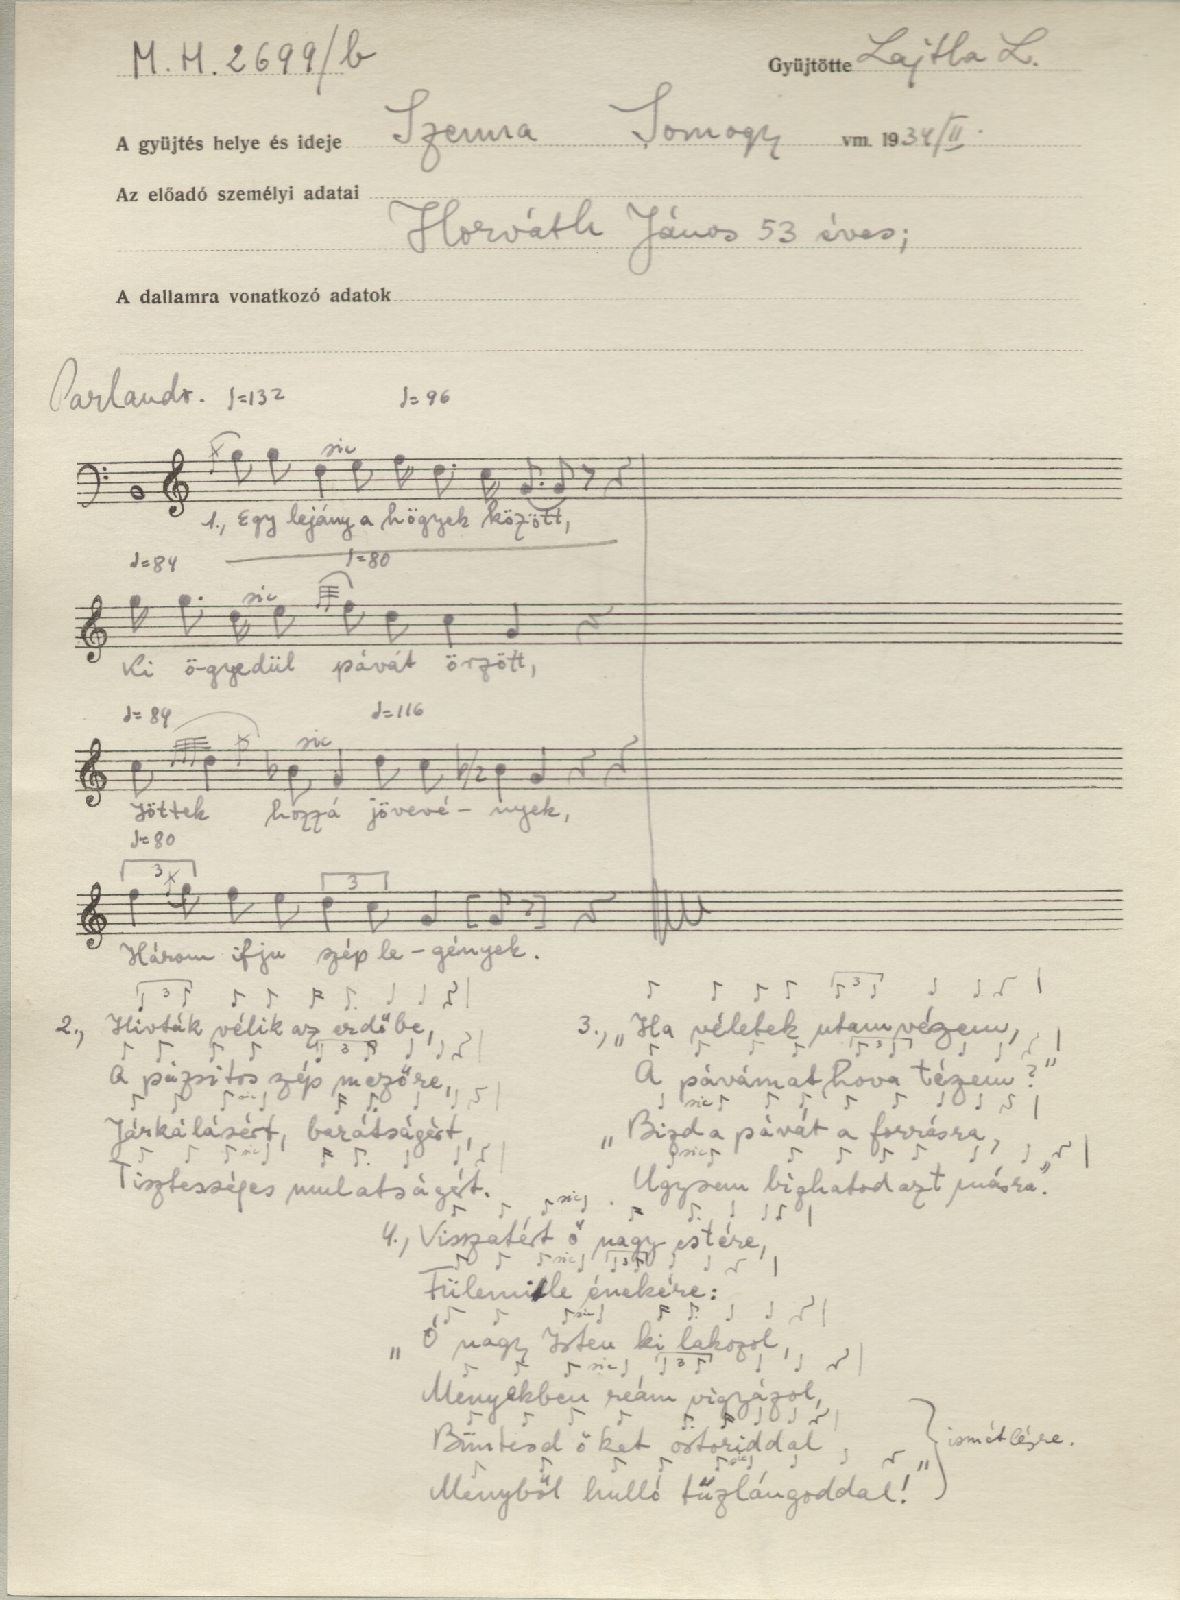 M. H. 2699/b
Gyüjtötte Lajtha L.
A gyüjtés helye és ideje Szenna Somogy vm. 1934/II.
Az előadó személyi adatai
Horváth János 53 éves;
A dallamra vonatkozó adatok
Parlando. ♩=132 ♩=96
sic
1., Egy lejány a högyek között,
♩=84 ♩=80
sic
Ki ö-gyedül pávát örzött,
♩=84 ♩=116
sic
Jöttek hozzá jövevé - nyek,
♩=80
3 3
Három ifju szép le - gények.
3
2., Hivták vélik az erdőbe,
3
A pázsitos szép mezőre,
sic
Járkálásért, barátságért,
sic
Tisztességes mulatságért.
3
3., „Ha véletek utam vészem,
3
A pávámat hova tészem?"
sic
„Bizd a pávát a forrásra,
sic
Ugysem bizhatod azt másra."
sic
4., Visszatért ő nagy estére,
sic 3
Fülemille énekére:
sic
„Ó nagy Isten ki lakozol,
sic 3
Menyekben reám vigyázol,
Büntesd őket ostoriddal,
sic
Menyből hulló tűzlángoddal!"
ismétlésre.